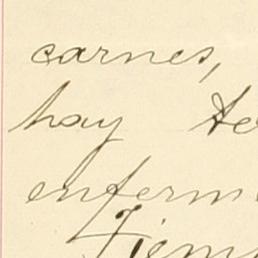 carnes,
hay te
enferm
Tiem